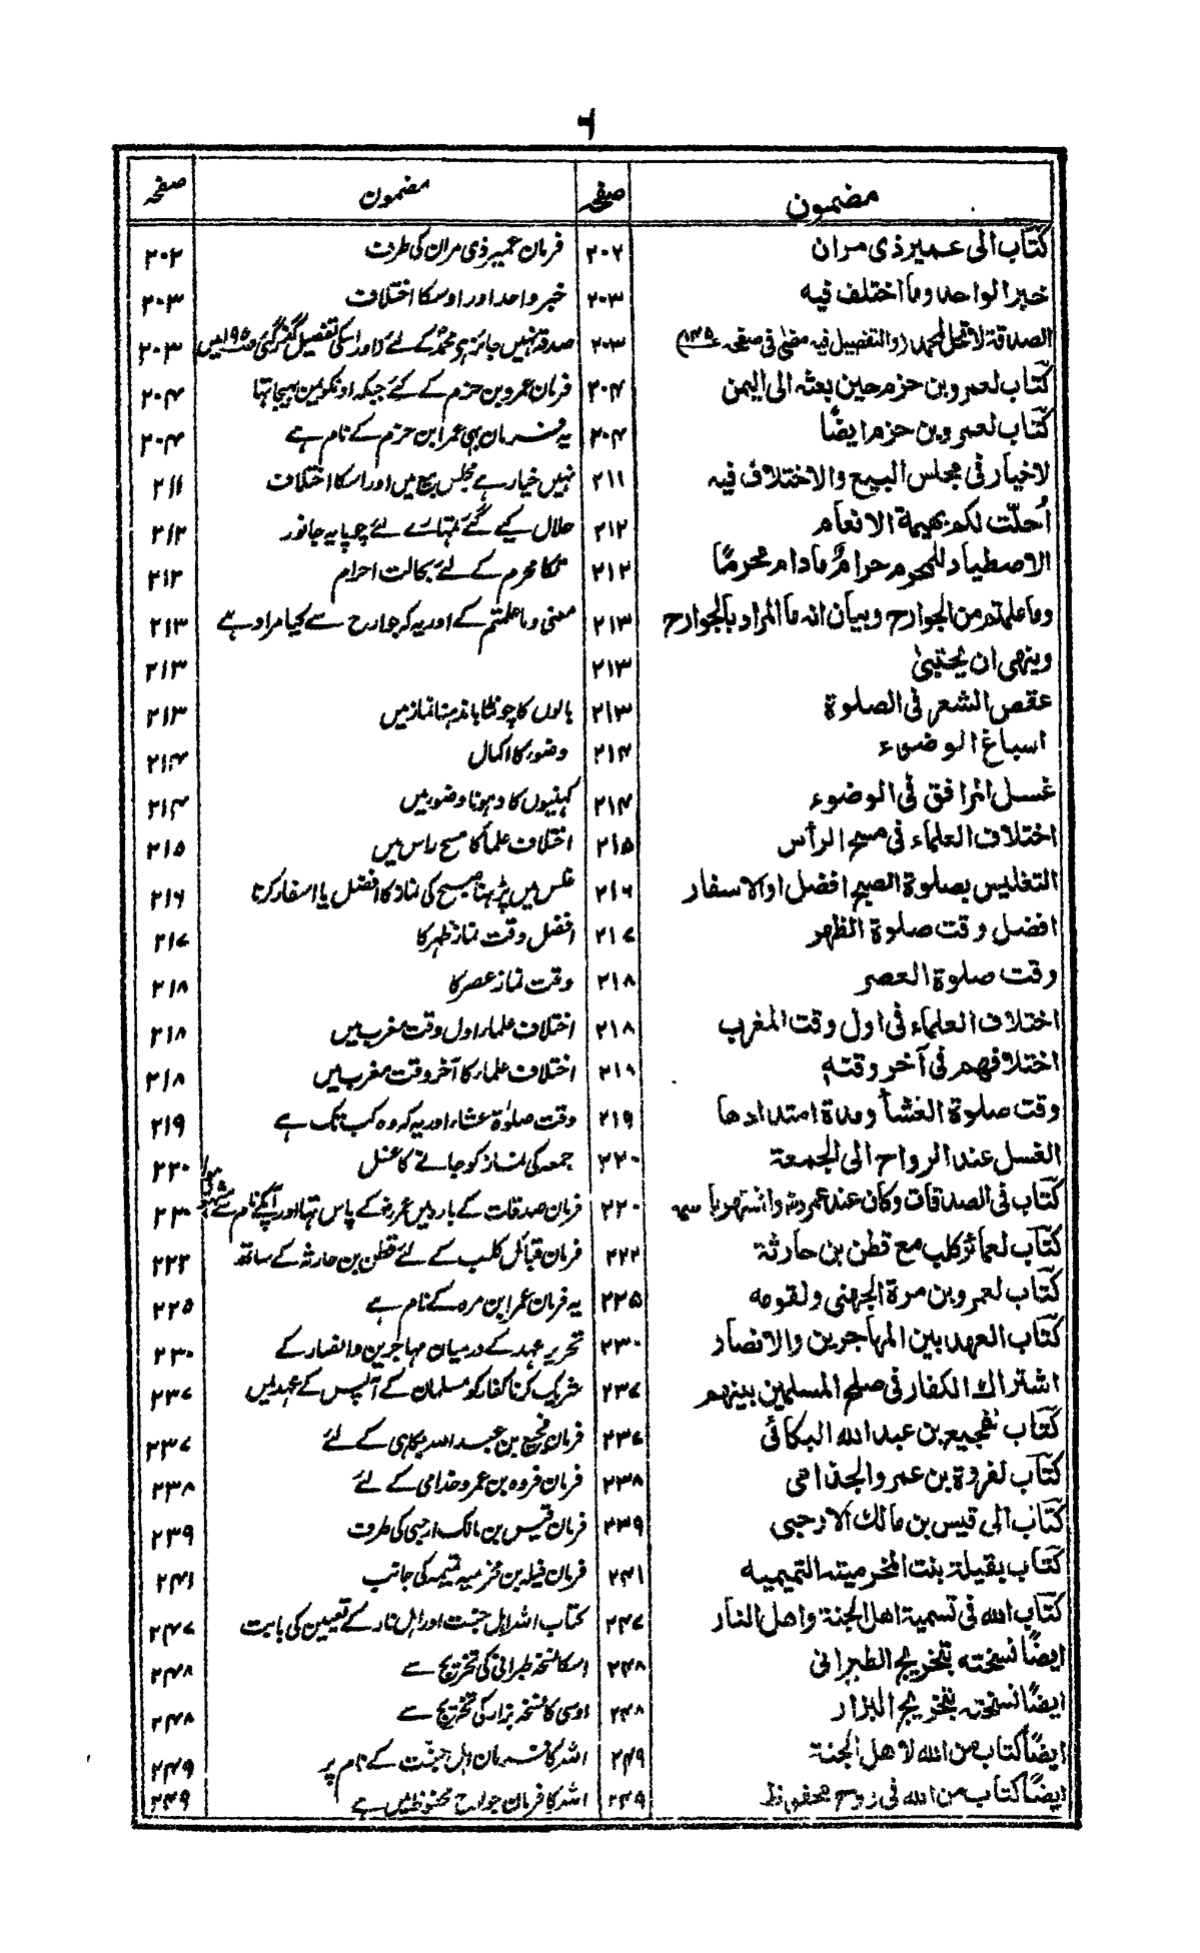 ٦
مضمون صفحہ مضمون صفحہ
كتاب الى عمير ذى مران ٢٠٢ فرمان عمیر ذی مران کی طرف ٢٠٢
خبر الواحد وما اختلف فيه ٢٠٣ خبر واحد اور اوسکا اختلاف ٢٠٣
الصدقة لا تحل لمحمد (والتفصيل فيه مضى فى صفحہ ١٩٥) ٢٠٣ صدقہ نہیں جائز ہے محمدؐ کے لئے (اور اسکی تفصیل گذر گئی صفحہ ١٩٥ میں ٢٠٣
كتاب لعمرو بن حزم حين بعثه الى اليمن ٢٠٤ فرمان عمرو بن حزم کے لئے جبکہ اونکو یمن بھیجا تہا ٢٠٤
كتاب لعمرو بن حزم ايضًا ٢٠٤ یہ فرمان بہی عمرابن حزم کے نام ہے ٢٠٤
لا خيار فى مجلس البيع والاختلاف فيه ٢١١ نہیں خیار ہے مجلس بیع میں اور اسکا اختلاف ٢١١
اُحلّت لكم بهيمة الانعام ٢١٢ حلال کیے گئے تمہارے لئے چوپایہ جانور ٢١٢
الاصطياد للمحرم حرامٌ مادام محرمًا ٢١٢ محرم کے لئے بحالت احرام ٢١٢
وما علمتم من الجوارح وبيان انه ما المراد بالجوارح ٢١٣ معنی وما علمتم کے اور یہ کہ جوارح سے کیا مراد ہے ٢١٣
وينهى ان يحتبىٰ ٢١٣ ٢١٣
عقص الشعر فى الصلوة ٢١٣ بالوں کا چونٹا باندہنا نماز میں ٢١٣
اسباغ الوضوء ٢١٤ وضو کا اکمال ٢١٤
غسل المرافق فى الوضوء ٢١٤ کہنیوں کا دہونا وضو میں ٢١٤
اختلاف العلماء فى مسح الرأس ٢١٥ اختلاف علما کا مسح راس میں ٢١٥
التغليس بصلوة الصبح افضل او الاسفار ٢١٦ غلس میں پڑہنا صبح کی نماز کا افضل یا اسفار کرنا ٢١٦
افضل وقت صلوة الظهر ٢١٧ افضل وقت نماز ظہر کا ٢١٧
وقت صلوة العصر ٢١٨ وقت نماز عصر کا ٢١٨
اختلاف العلماء فى اول وقت المغرب ٢١٨ اختلاف علماء اول وقت مغرب میں ٢١٨
اختلافهم فى آخر وقته ٢١٨ اختلاف علماء کا آخر وقت مغرب میں ٢١٨
وقت صلوة العشأ ومدة امتدادها ٢١٩ وقت صلوٰۃ عشاء اور یہ کہ وہ کب تک ہے ٢١٩
الغسل عند الرواح الى الجمعة ٢٢٠ جمعہ کی نماز کو جانے کا غسل ٢٢٠
كتاب فى الصدقات وكان عند عمر واشتهر با سمه ٢٢٠ فرمان صدقات کے بارہ میں عمرؓ کے پاس تہا اور آپکے نام سے مشہور ہوا ٢٢٠
كتاب لعمائر كلب مع قطن بن حارثة ٢٢٢ فرمان قبائل کلب کے لئے قطن بن حارثہ کے ساتھ ٢٢٢
كتاب لعمرو بن مرة الجهنى ولقومه ٢٢٥ یہ فرمان عمرابن مرہ کے نام ہے ٢٢٥
كتاب العهد بين المهاجرين والانصار ٢٣٠ تحریر عہد کے درمیان مہاجرین وانصار کے ٢٣٠
اشتراك الكفار فى صلح المسلمين بينهم ٢٣٧ شریک کرنا کفار کو مسلمان کے آپس کے عہد میں ٢٣٧
كتاب لفجيع بن عبد الله البكائى ٢٣٧ فرمان فجیع بن عبد اللہ بکاہی کے لئے ٢٣٧
كتاب لفروة بن عمرو الجذامى ٢٣٨ فرمان فروہ بن عمرو جذامی کے لئے ٢٣٨
كتاب الى قيس بن مالك الارحبى ٢٣٩ فرمان قیس بن مالک ارحبی کی طرف ٢٣٩
كتاب بقيلة بنت المخرميته التميميه ٢٤١ فرمان قیلہ بن مخرمیہ تمیمہ کی جانب ٢٤١
كتاب الله فى تسمية اهل الجنة واهل النار ٢٤٧ کتاب اللہ اہل جنت اور اہل نار کے تعیین کی بابت ٢٤٧
ايضًا نسخته بتخريج الطبرانى ٢٤٨ اسکا نسخہ طبرانی کی تخریج سے ٢٤٨
ايضًا نسخته بتخريج البزار ٢٤٨ اوسی کا نسخہ بزار کی تخریج سے ٢٤٨
ايضًا كتاب من الله لاهل الجنة ٢٤٩ اللہ کا فرمان اہل جنت کے نام پر ٢٤٩
ايضًا كتاب من الله فى لوح محفوظ ٢٤٩ اللہ کا فرمان جو لوح محفوظ میں ہے ٢٤٩